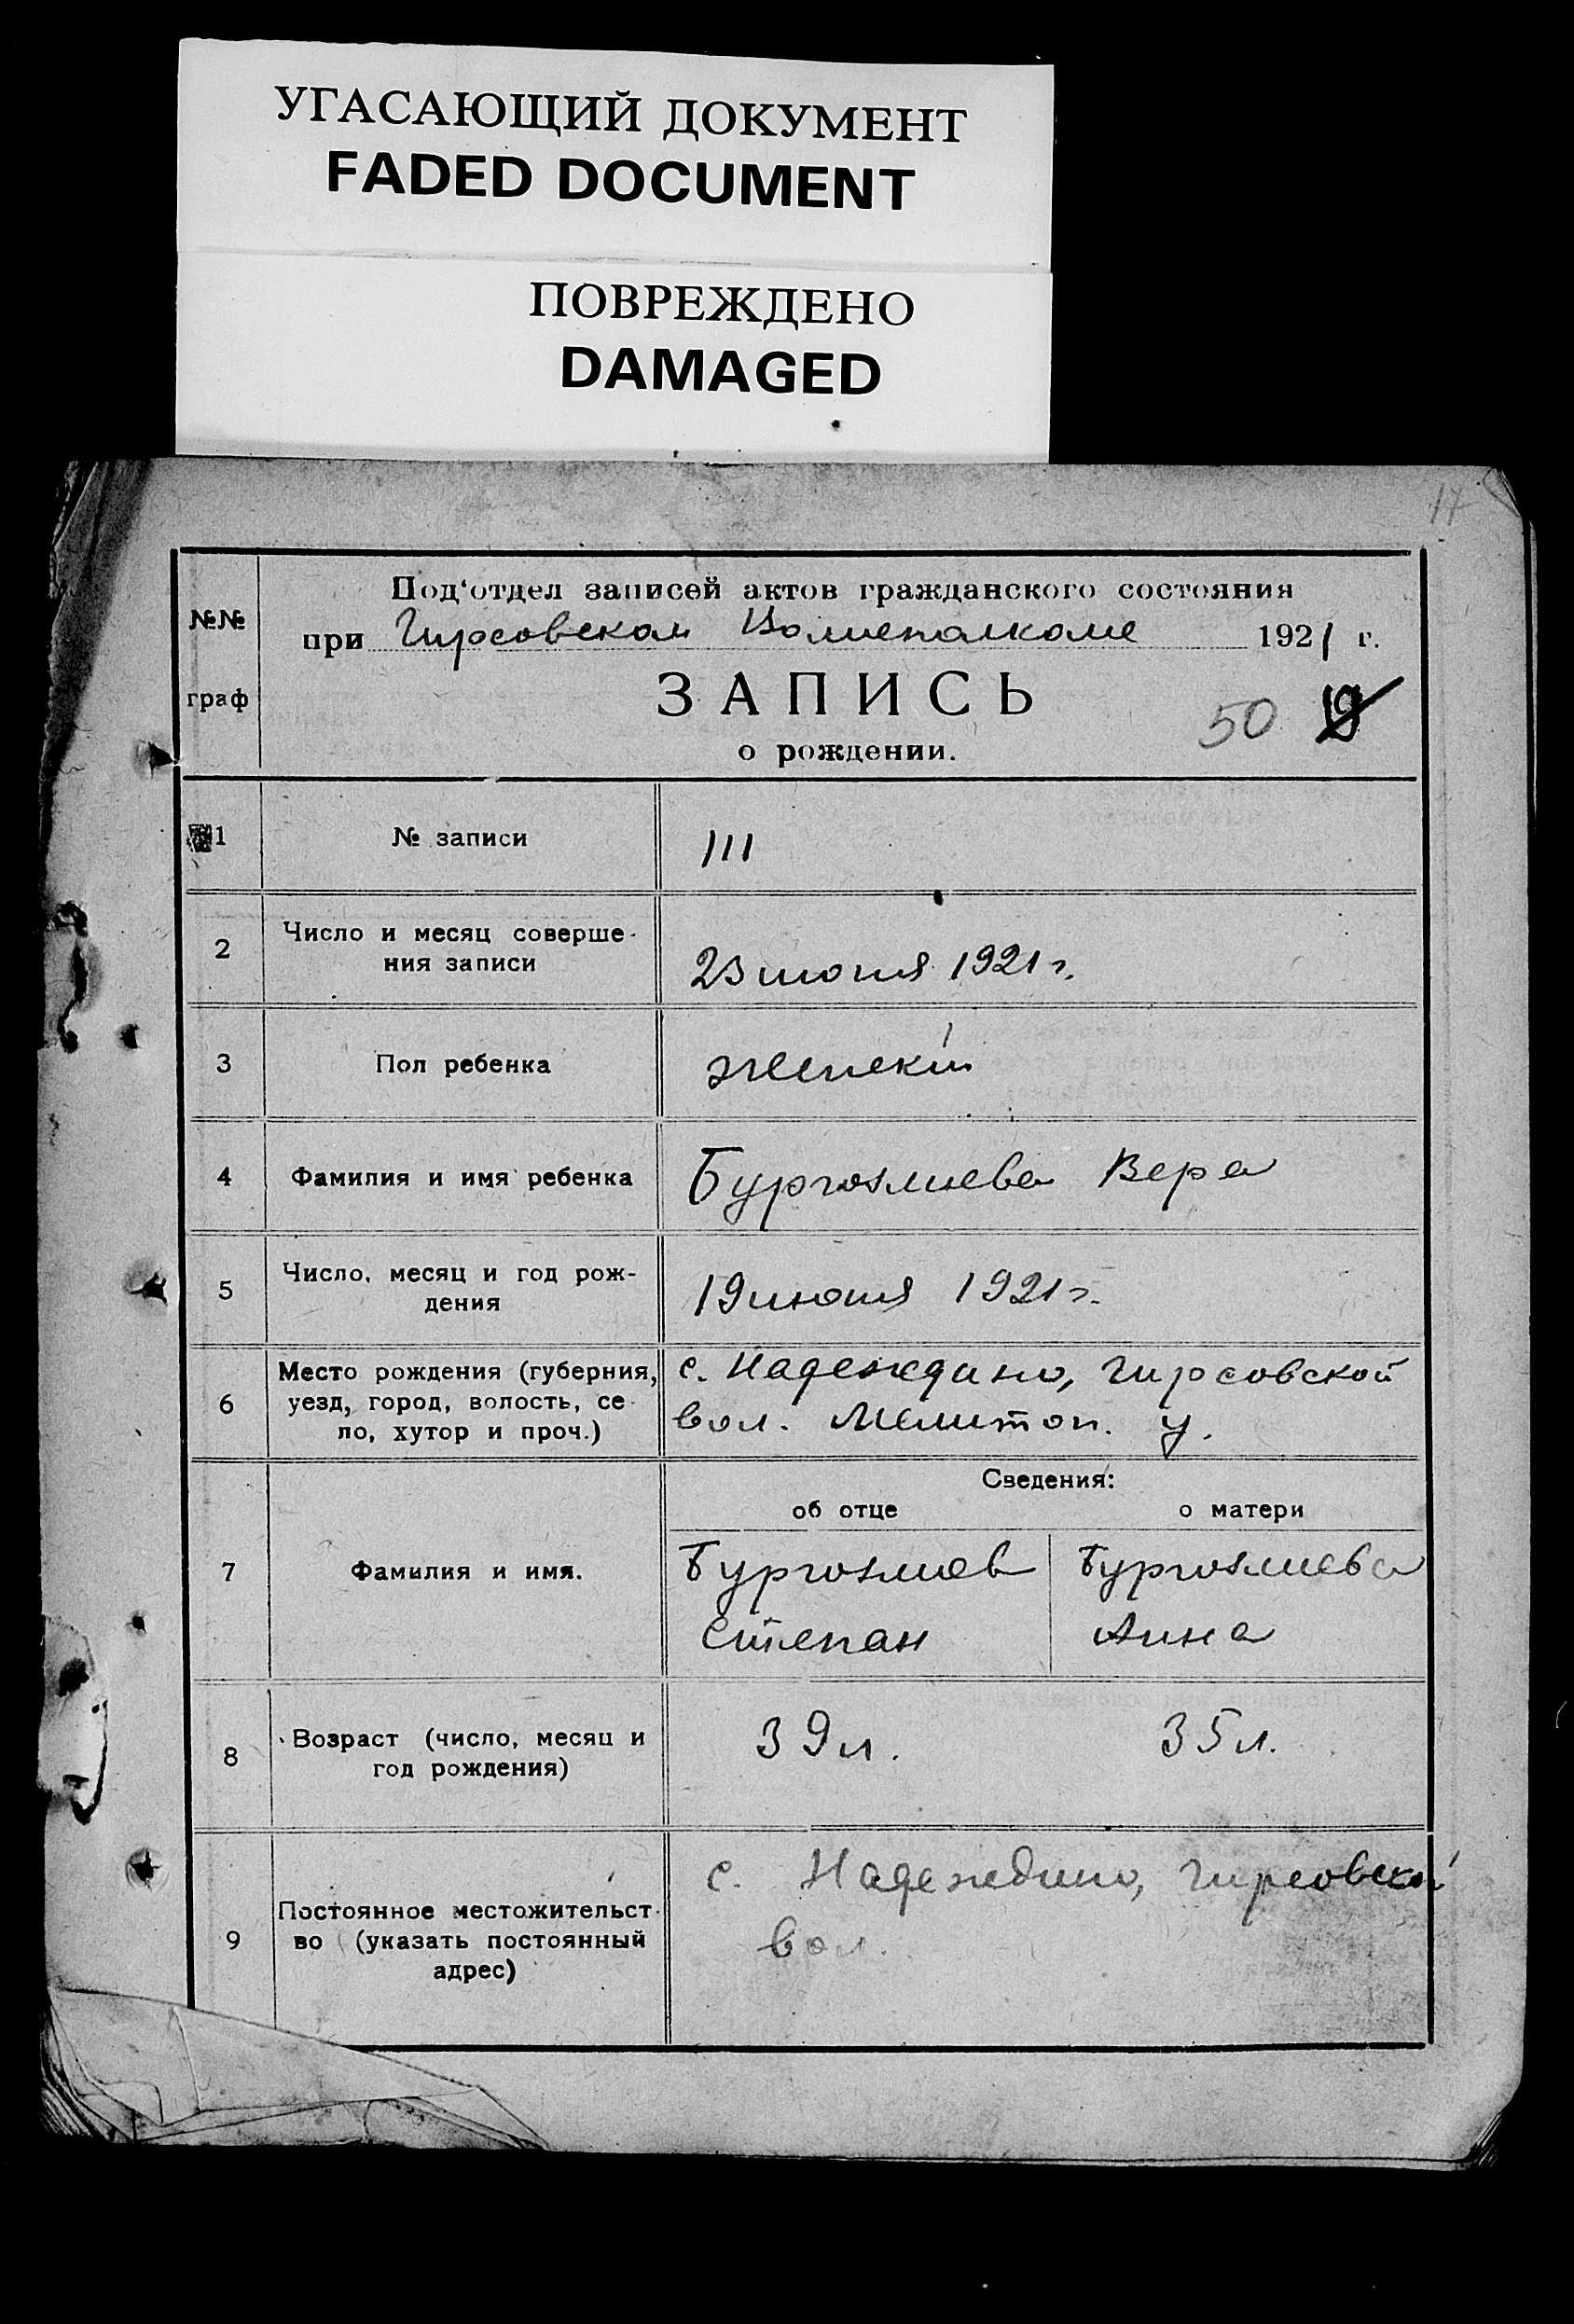 УГАСАЮЩИЙ ДОКУМЕНТ
FADED DOCUMENT
ПОВРЕЖДЕНО
DAMAGED
17
№№
граф
Под'отдел записей актов гражданского состояния
при Гирсовском Волисполкоме 1921 г.
ЗАПИСЬ
50 19
о рождении.
1 № записи 111
2 Число и месяц соверше-
ния записи 23 июня 1921 г.
3 Пол ребенка женский
4 Фамилия и имя ребенка Бургозлиева Вера
5 Число, месяц и год рож-
дения 19 июня 1921 г.
6 Место рождения (губерния,
уезд, город, волость, се-
ло, хутор и проч.)
с. Надеждино, Гирсовской
вол. Мелитоп. у.
Сведения:
об отце о матери
7 Фамилия и имя.
Бургозлиев Бургозлиева
Степан Анна
8 Возраст (число, месяц и
год рождения) 39 л. 35 л.
9 Постоянное местожительст-
во (указать постоянный
адрес)
с. Надеждино, Гирсовской
вол.